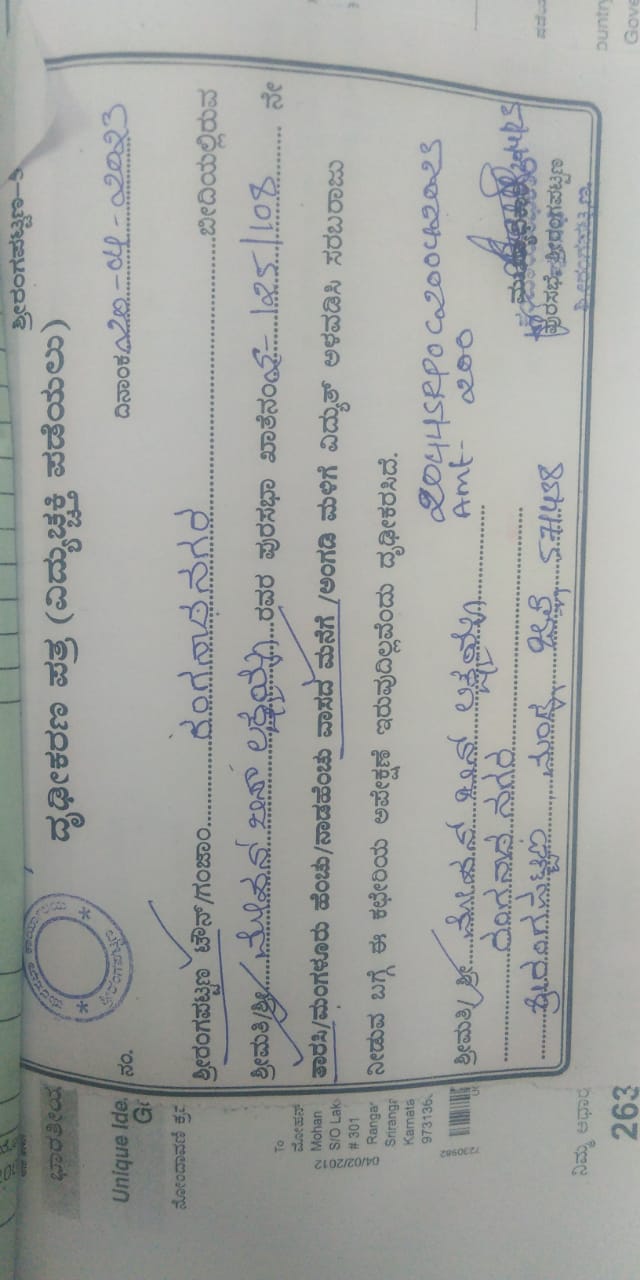 ಶ್ರೀರಂಗಪಟ್ಟಣ-
ದೃಢೀಕರಣ ಪತ್ರ (ವಿದ್ಯುಚ್ಛಕ್ತಿ ಪಡೆಯಲು)
ನಂ. ದಿನಾಂಕ 20-04-2023
ಶ್ರೀರಂಗಪಟ್ಟಣ ಟೌನ್/ಗಂಜಾಂ ರಂಗನಾಥನಗರ ಬೀದಿಯಲ್ಲಿರುವ
ಶ್ರೀಮತಿ/ಶ್ರೀ ಮೋಹನ ಬಿನ್ ಲಕ್ಷ್ಮಯ್ಯ ರವರ ಪುರಸಭಾ ಖಾತೆನಂ 125/108 ನೇ
ತಾರಸಿ/ಮಂಗಳೂರು ಹೆಂಚು/ನಾಡಹೆಂಚು ವಾಸದ ಮನೆಗೆ /ಅಂಗಡಿ ಮಳಿಗೆ ವಿದ್ಯುತ್ ಅಳವಡಿಸಿ ಸರಬರಾಜು
ನೀಡುವ ಬಗ್ಗೆ ಈ ಕಛೇರಿಯ ಆಪೇಕ್ಷಣೆ ಇರುವುದಿಲ್ಲವೆಂದು ದೃಢೀಕರಿಸಿದೆ.
2044SRPOC20042023
Amt- 200
ಶ್ರೀಮತಿ/ ಶ್ರೀ ಮೋಹನ ಬಿನ್ ಲಕ್ಷ್ಮಯ್ಯ
ರಂಗನಾಥ ನಗರ
ಶ್ರೀರಂಗಪಟ್ಟಣ ಮಂಡ್ಯ ಜಿಲ್ಲೆ 571438
ಪುರಸಭೆ, ಶ್ರೀರಂಗಪಟ್ಟಣ
ಶ್ರೀರಂಗಪಟ್ಟಣ
ಭಾರತೀಯ
Unique Ide
ನೋಂದಾವಣಿ ಕ್ರ
To
ಮೋಹನ್
Mohan
S/O Lak
# 301
Ranga
Srirang
Karnata
973136
04/02/2012
7230982
ನಿಮ್ಮ ಆಧಾರ
263
ountry
Gove